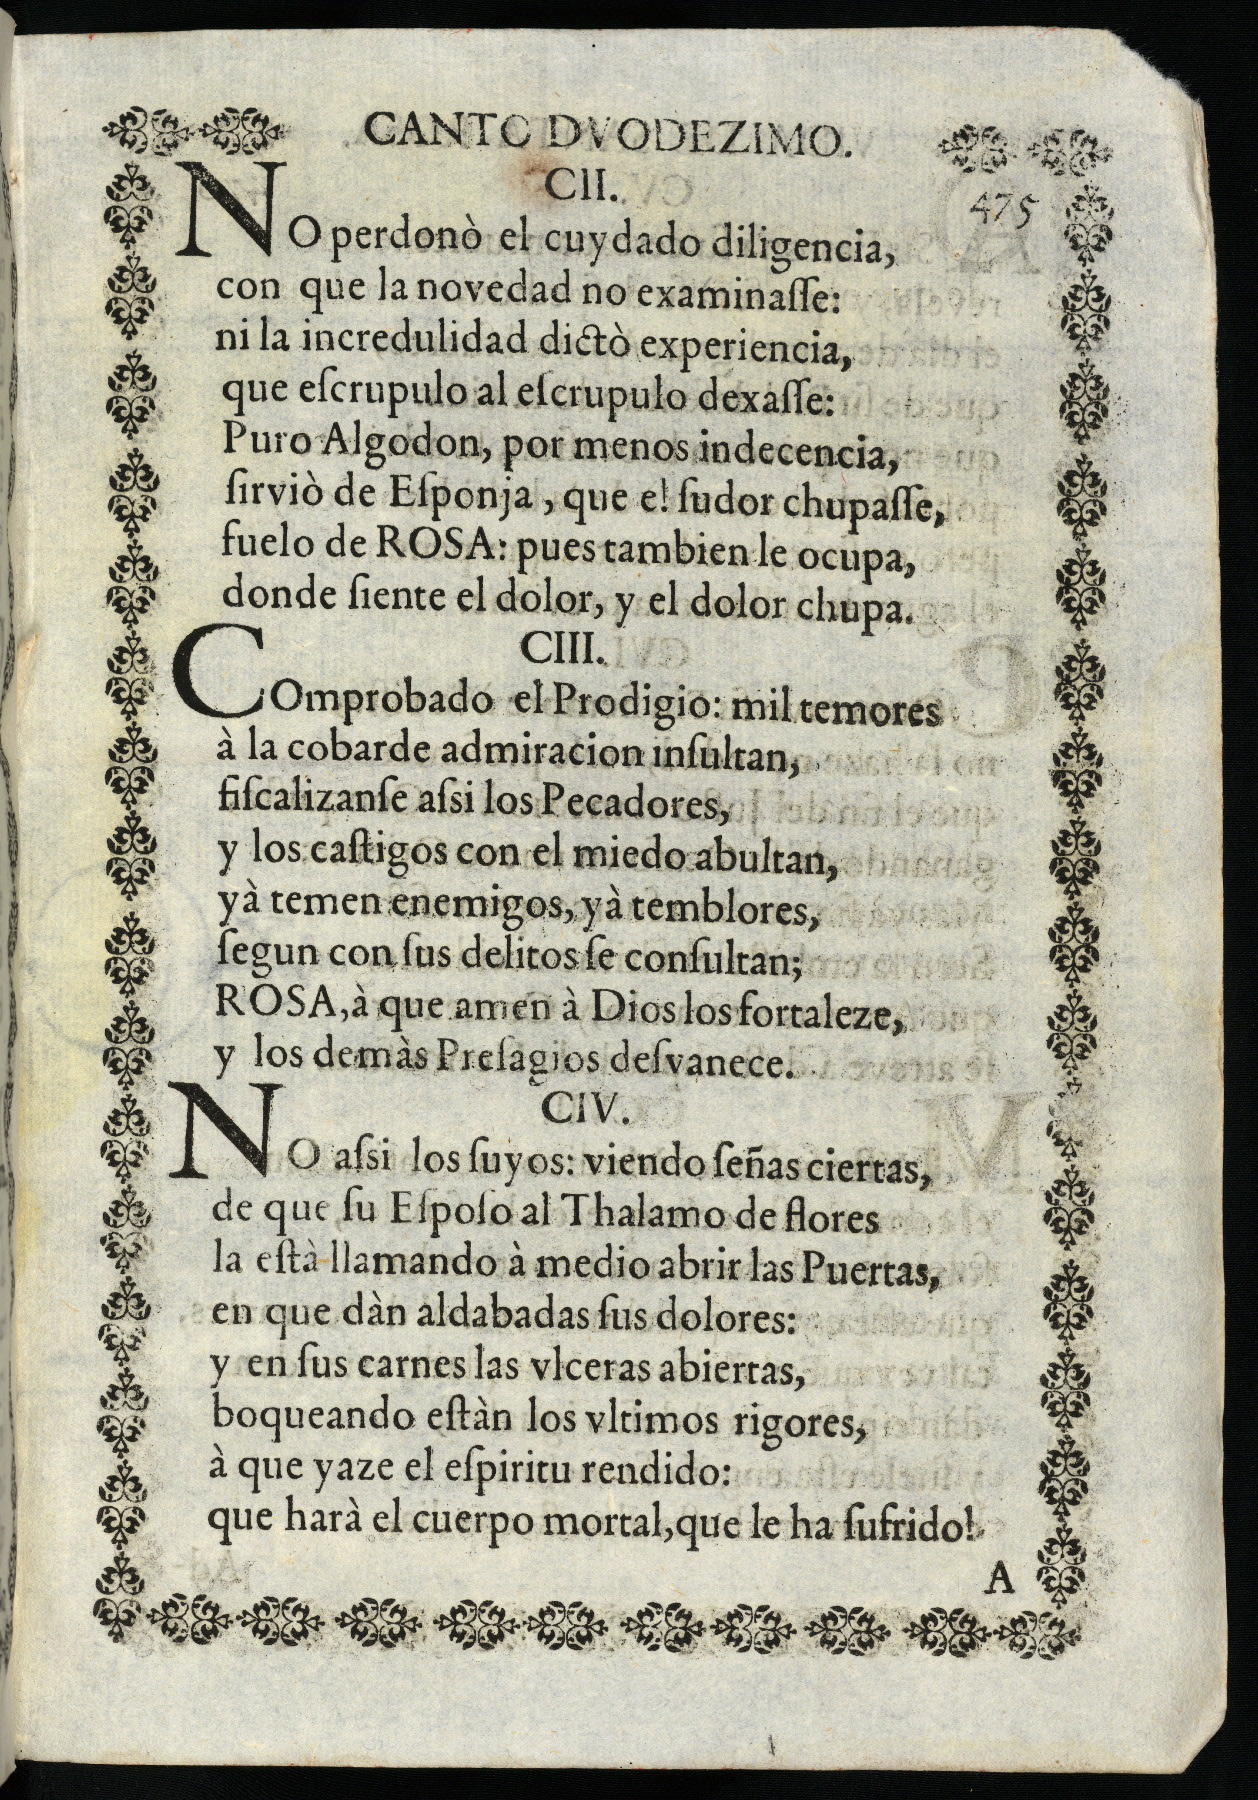 CANTO DVODEZIMO.
475
CII.
NO perdonò el cuydado diligencia,
con que la novedad no examinaſſe:
ni la incredulidad dictò experiencia,
que eſcrupulo al eſcrupulo dexaſſe:
Puro Algodon, por menos indecencia,
ſirviò de Eſponja, que el ſudor chupaſſe,
ſuelo de ROSA: pues tambien le ocupa,
donde ſiente el dolor, y el dolor chupa.
CIII.
COmprobado el Prodigio: mil temores
à la cobarde admiracion inſultan,
fiſcalizanſe aſsi los Pecadores,
y los caſtigos con el miedo abultan,
yà temen enemigos, yà temblores,
ſegun con ſus delitos ſe conſultan;
ROSA, à que amen à Dios los fortaleze,
y los demàs Preſagios deſvanece.
CIV.
NO aſsi los ſuyos: viendo ſeñas ciertas,
de que ſu Eſpoſo al Thalamo de flores
la eſtà llamando à medio abrir las Puertas,
en que dàn aldabadas ſus dolores:
y en ſus carnes las vlceras abiertas,
boqueando eſtàn los vltimos rigores,
à que yaze el eſpiritu rendido:
que harà el cuerpo mortal, que le ha ſufrido!
A